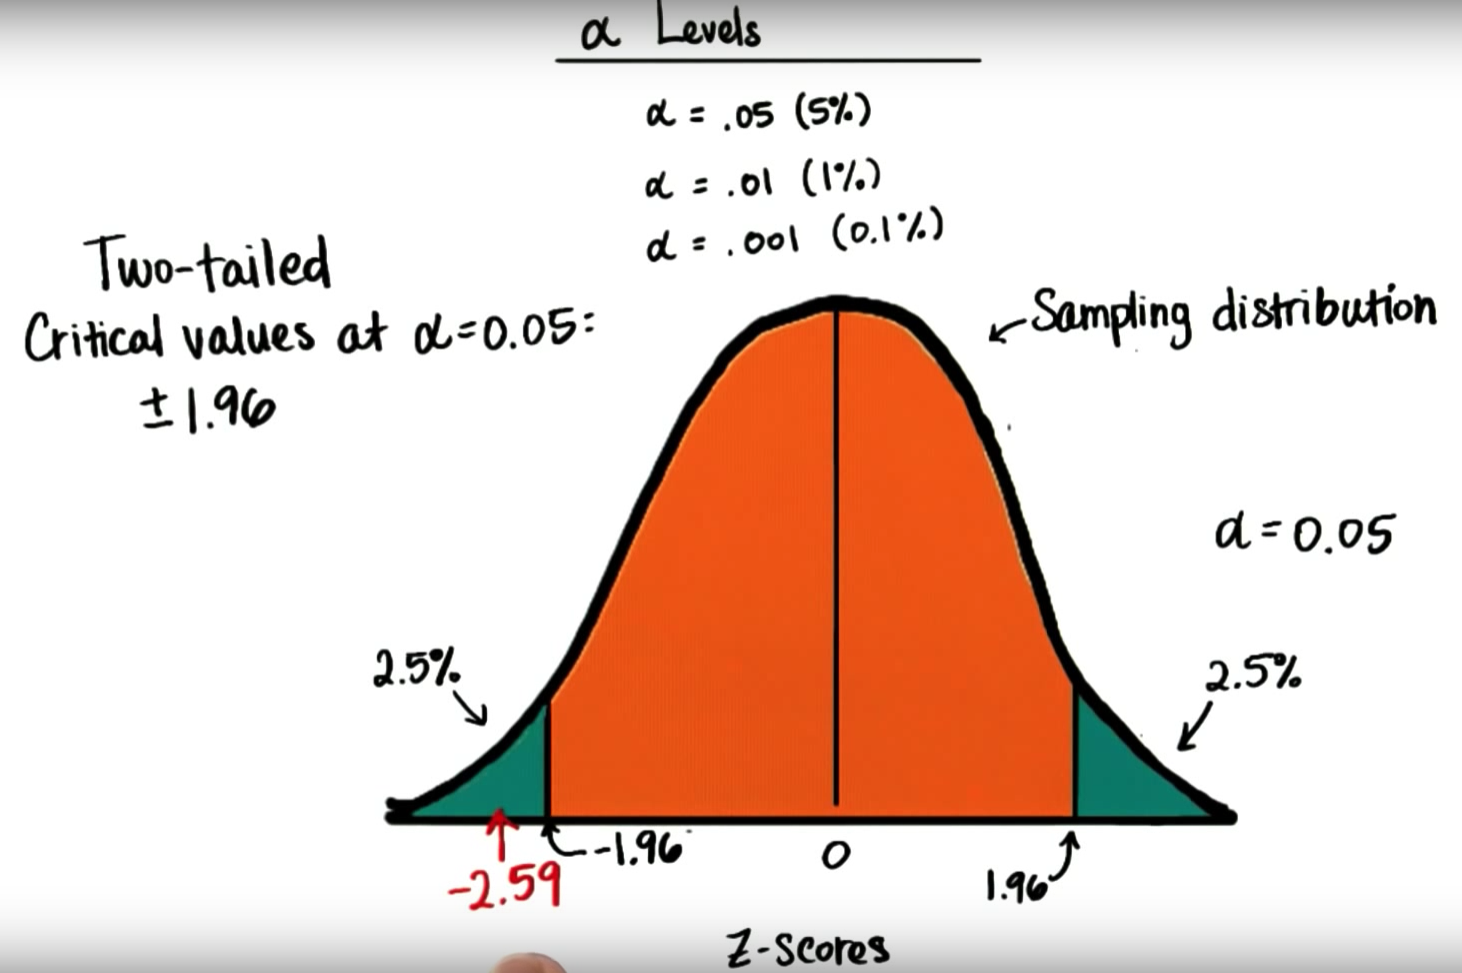 α Levels
α = .05 (5%)
α = .01 (1%)
α = .001 (0.1%)
Two-tailed
Critical values at α=0.05:
±1.96
Sampling distribution
α=0.05
2.5%
2.5%
-1.96
0
1.96
-2.59
Z-Scores